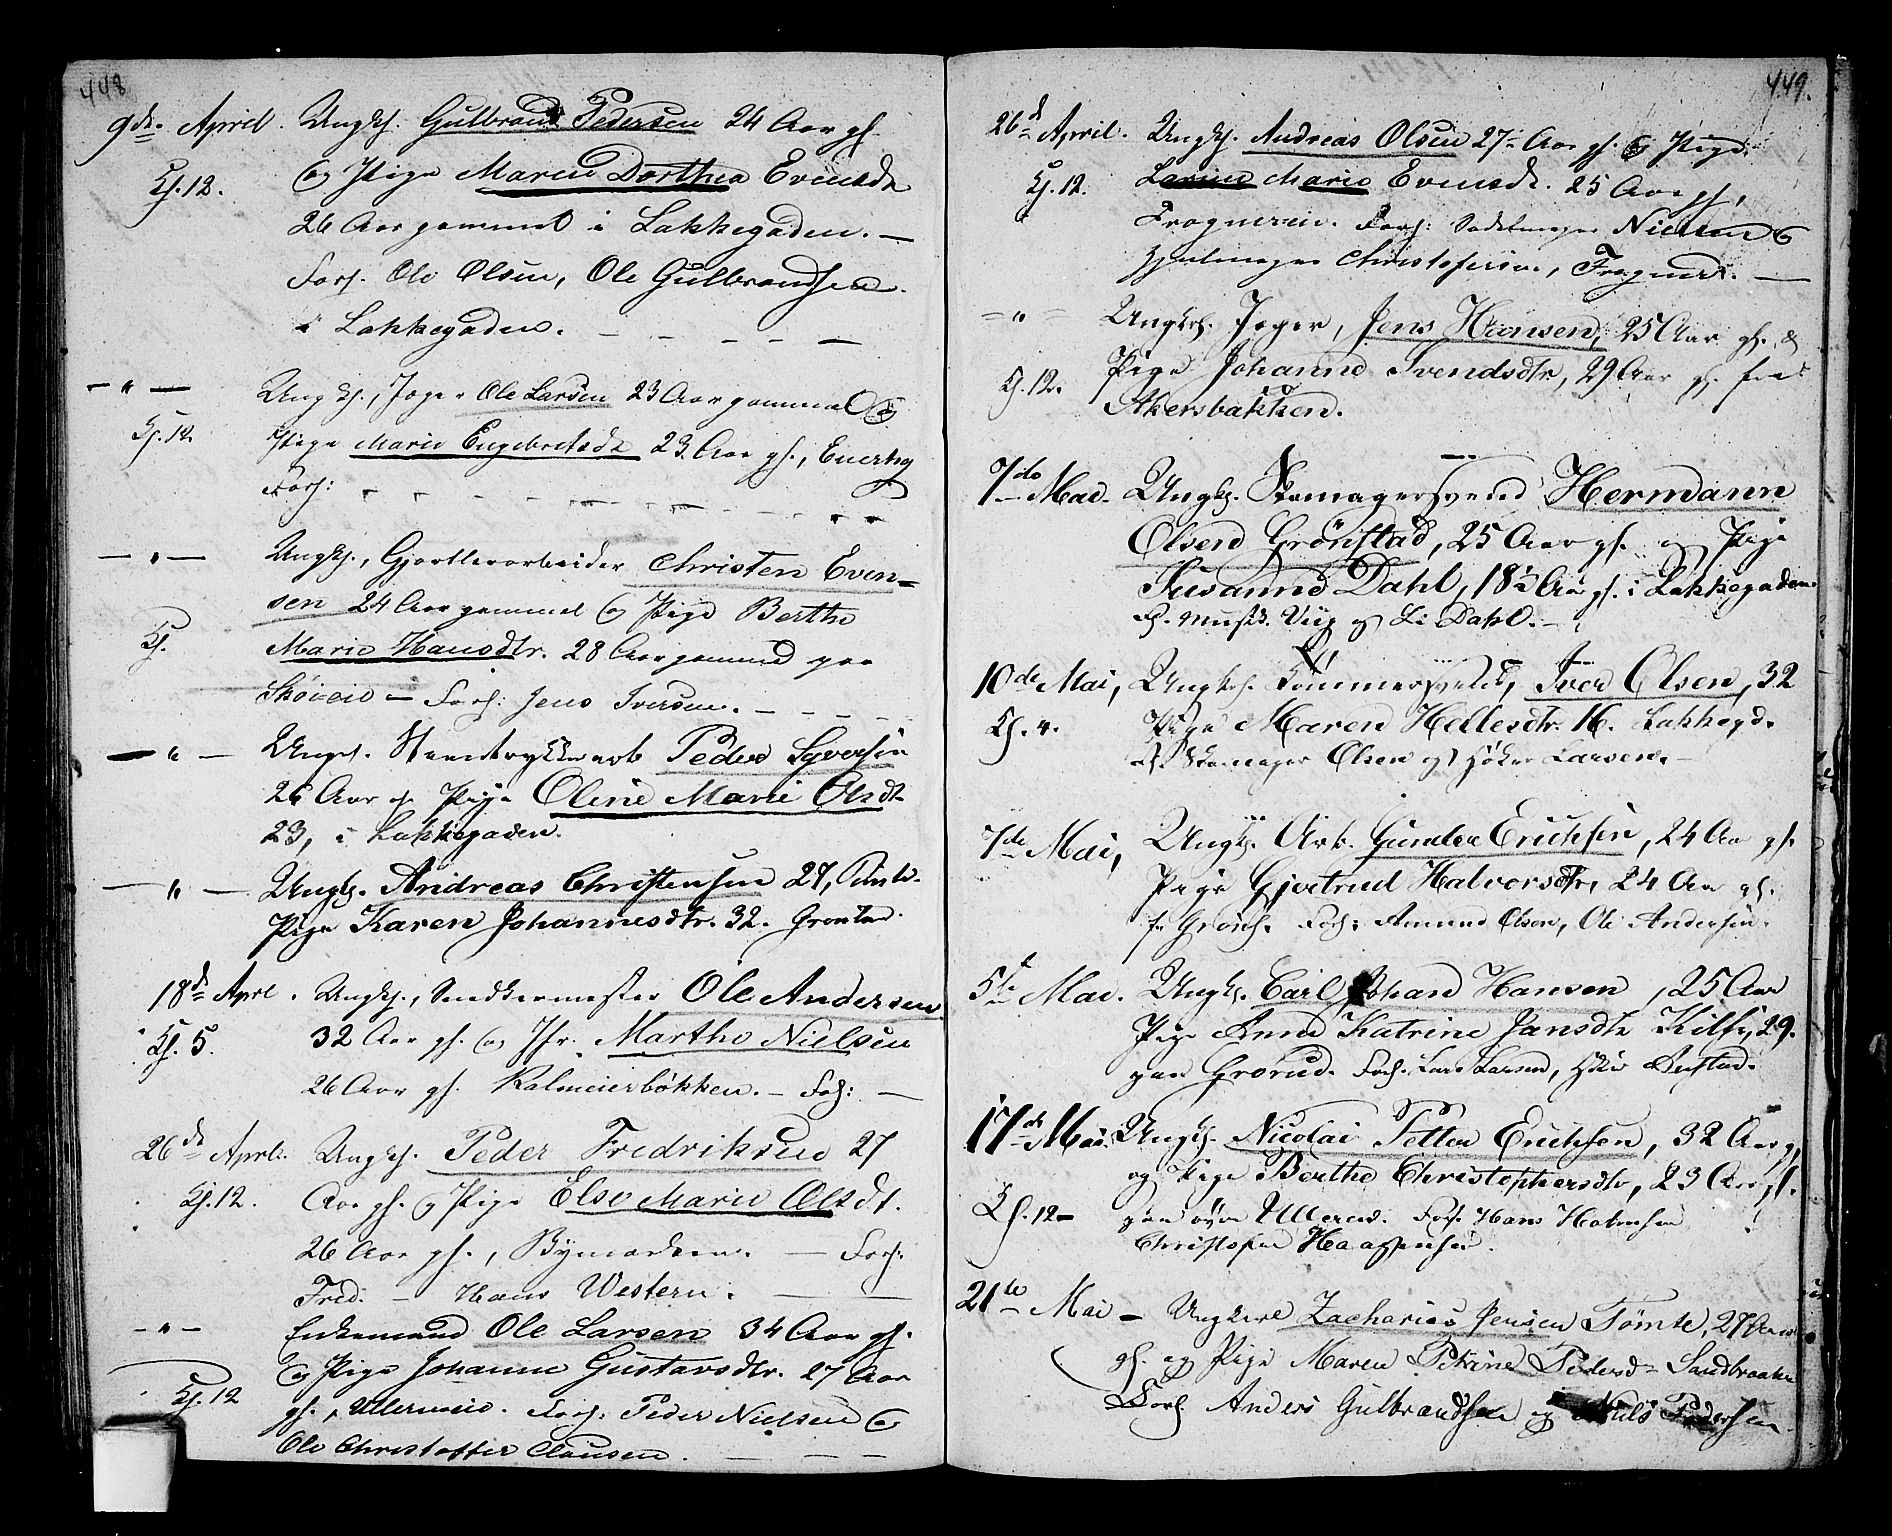 448
9de April. Ungk. Gulbrand Pedersen 24 Aar gl.
Kl. 12. og Pige Maren Dorthea Evensdr
26 Aar gammel i Lakkegaden. —
Forl. Ole Olsen, Ole Gulbrandsen
i Lakkegaden. — — — — —
— " — Ungk., Jæger Ole Larsen 23 Aar gammel og
Kl. 12. Pige Marie Engebretsdr 23 Aar gl., Enerhg
Forl:
— " — Ungk., Gjørtlerarbeider Christen Even=
sen 24 Aar gammel og Pige Berthe
Kl. Marie Hansdtr. 28 Aar gammel paa
— Forl: Jens Iversen. — — — —
— " — Ungk. Peder Syversen
26 Aar og Pige Oline Marie Olsdr
23, i Lakkegaden.
— " — Ungk. Andreas Christensen 27,
Pige Karen Johannesdtr. 32. Grønland.
18de April. Ungk., Snedkermester Ole Andersen
Kl. 5. 32 Aar gl. og Jfr. Marthe Nielsen
26 Aar gl. — Forl: —
26de April. Ungk. Peder Fredriksen 27
Kl. 12. Aar gl. og Pige Else Marie Olsdt.
26 Aar gl., Bymarken. — Forl:
Fred. — Hans Western. — —
— " — Enkemand Ole Larsen 34 Aar gl.
og Pige Johanne Gustavsdtr. 27 Aar
Kl. 12 gl., Forl: Peder Nielsen og
Ole Christoffer Clausen. — — —
449.
26de April. Ungk. Andreas Olsen 27 Aar gl. og Pige
Kl. 12. Larine Marie Evensdt. 25 Aar gl.,
Forl: Nielsen og
Christofersen,
— " — Ungk. Jæger, Jens Hansen, 25 Aar gl. &
Kl. 12. Pige Johanne Svendsdtr, 29 Aar gl. fra
Akersbakken.
7de Mai. Ungk. Skomagersvend Hermann
Olsen Grönstad, 25 Aar gl. og Pige
Susanne Dahl, 18½ Aar gl. i Lakkegaden
F. Musik. Viig og Dahl. —
10de Mai, Ungk. Tømmersvend, Iver Olsen, 32
Kl. 4. Pige Maren Hellesdtr. Lakkegd.
Skomager Olsen og Høker Larsen. —
7de Mai, Ungk. Arb. Gunder Erichsen, 24 Aar gl.
Pige Gjertrud Halvorsdtr, 24 Aar gl.
Forl: Amund Olsen, Ole Andersen.
5te Mai. Ungk. Carl Johan Hansen, 25 Aar
Pige Anne Katrine Jansdtr 29.
paa Grorud. Forl: Lars Larsen,
17de Mai. Ungk. Nicolai Petter Erichsen, 32 Aar g,
og Pige Berthe Christophersdtr, 23 Aar gl.
Kl. 12 — paa øvre Ullevold. Forl. Hans
Christofer Haagensen.
21de Mai — Ungkarl Zacharias Jensen Tømte, 27 Aar
gl. og Pige Maren Petrine Pedersd Sandbraaten
Forl Anders Gulbrandsen og Niels Pedersen